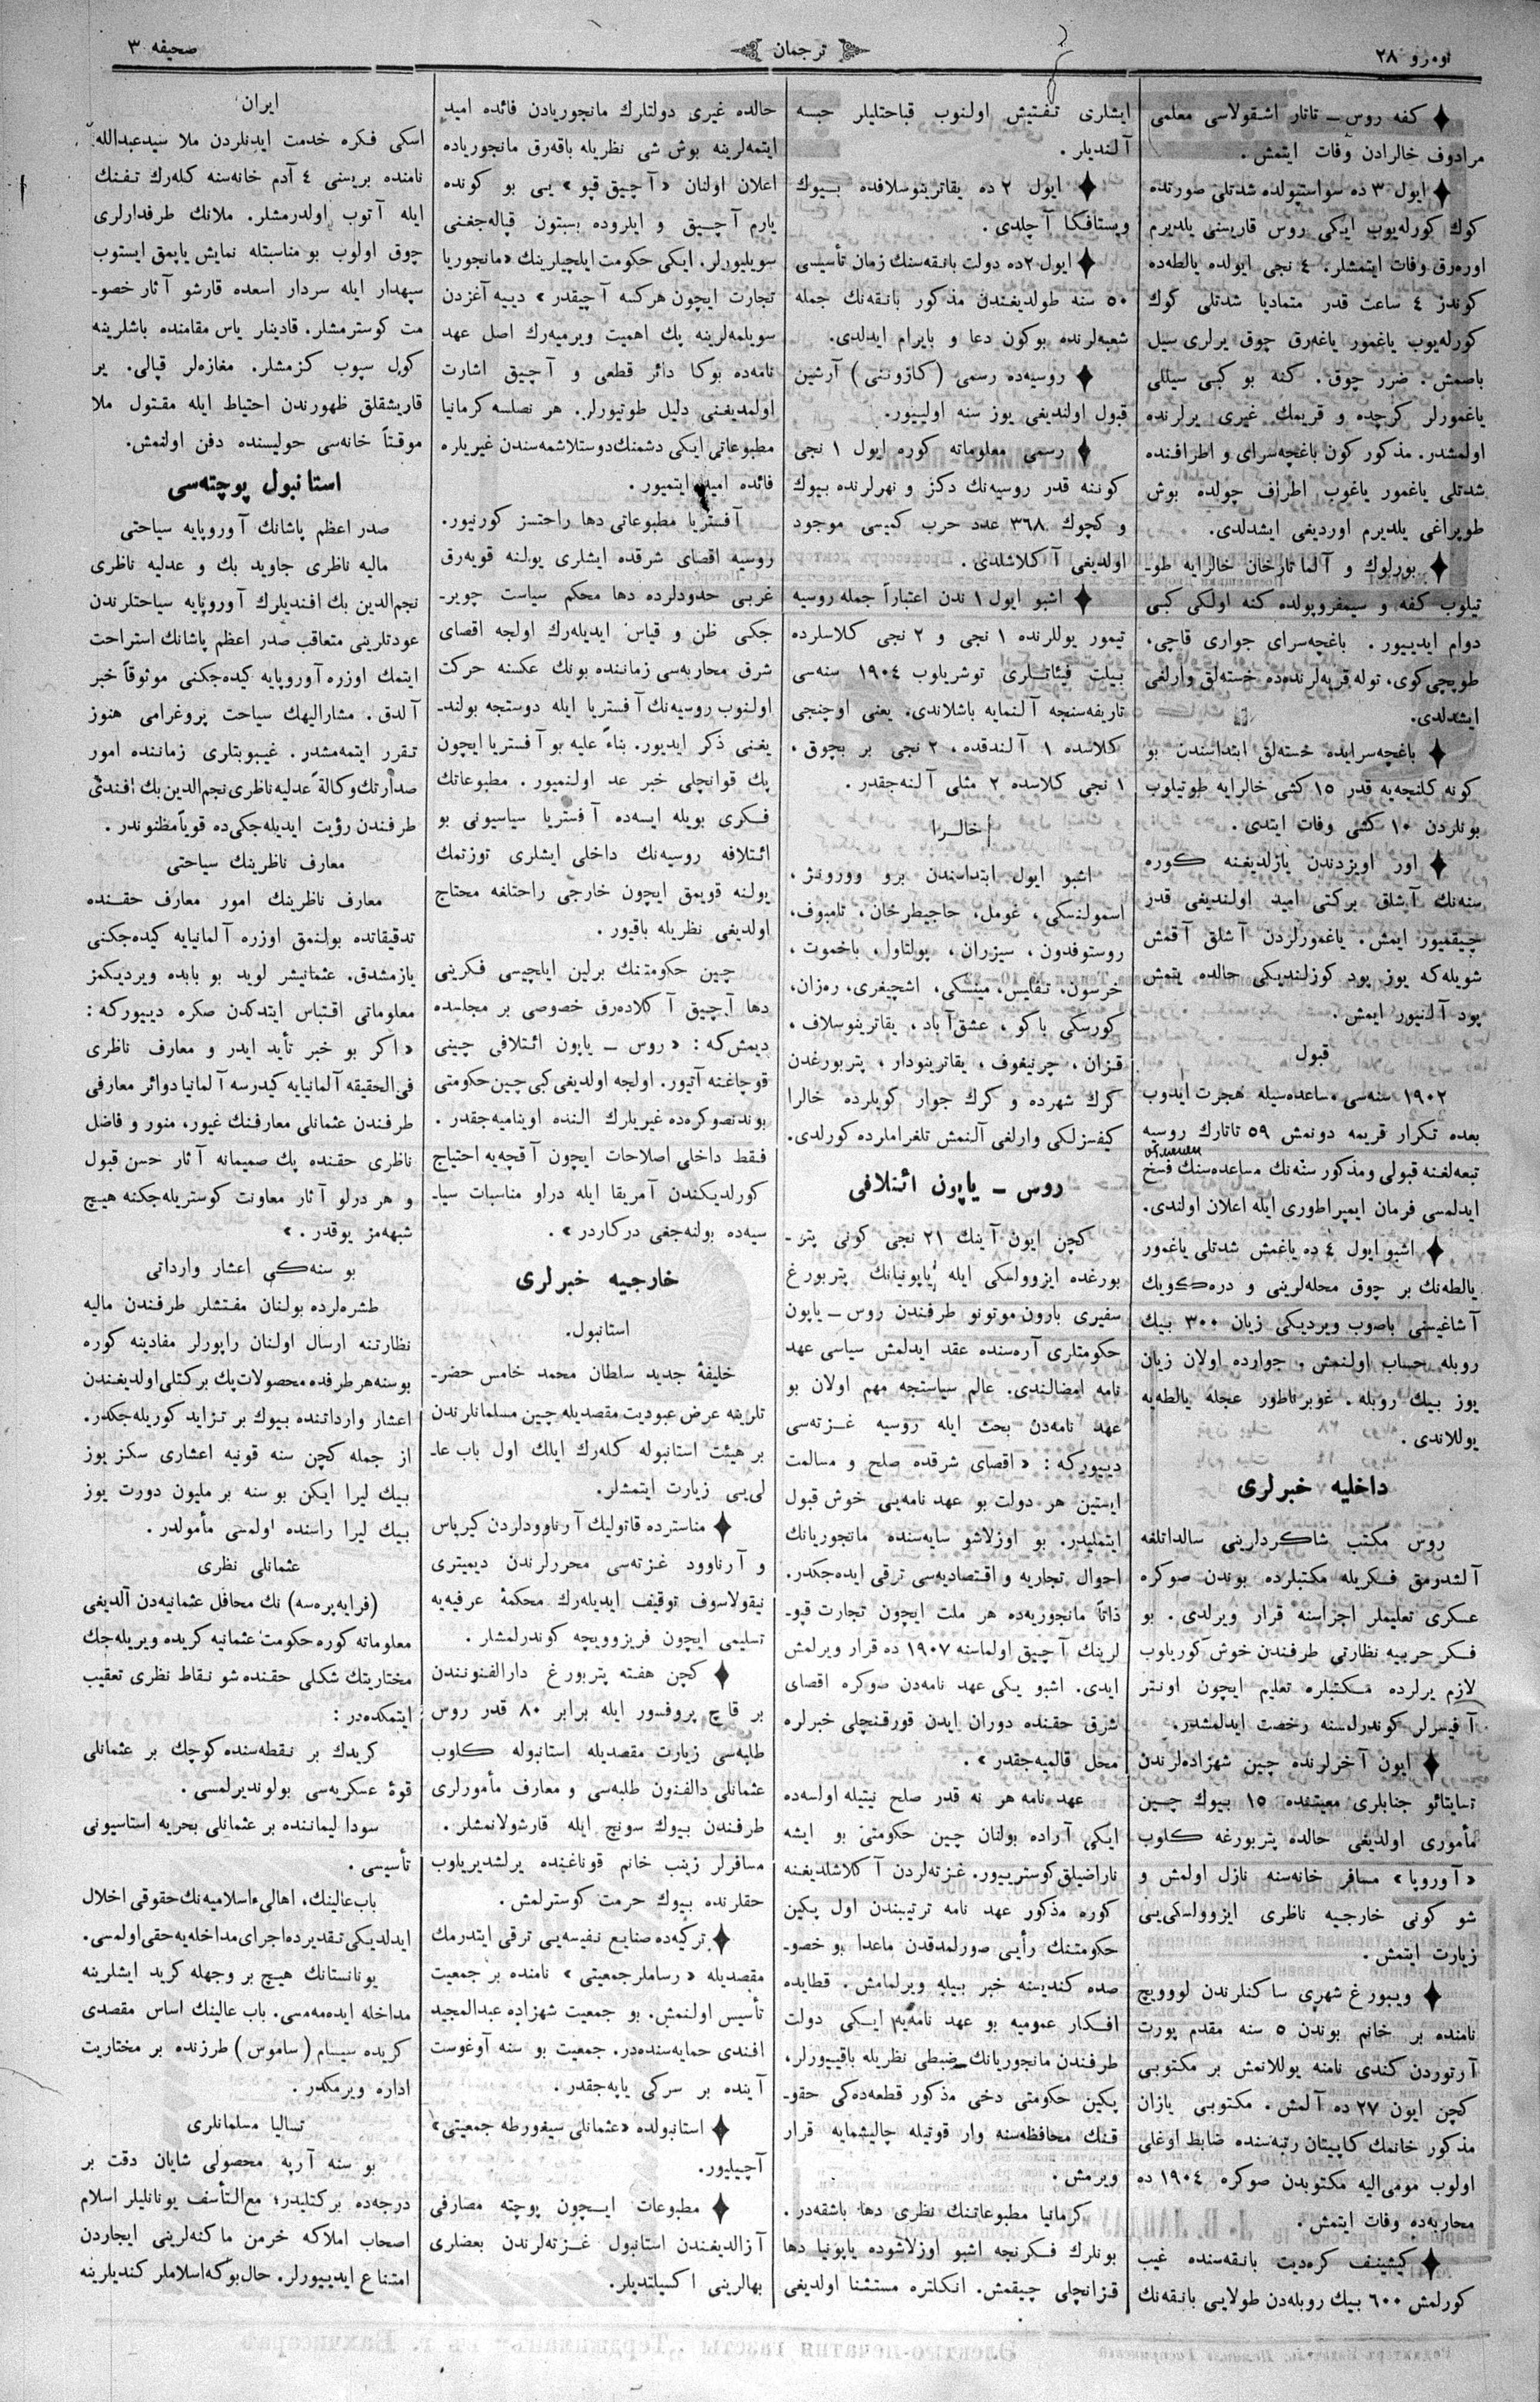 نومرو ٢٨
ترجمان
صحیفه ٣
كفه روس ـ تاتار اشقولاسی معلمی
مرادوف خالرادن وفات ایتمش.
ایول ٣ ده سواستپولده شدتلی صورتده
كوك كورله‌یوب ایكی روس قاریسنی یلدیرم
اوره‌رق وفات ایتمشلر. ٤ نجی ایولده یالطه‌ده
كوندز ٤ ساعت قدر متمادیا شدتلی كوك
كورله‌یوب یاغمور یاغه‌رق چوق یرلری سیل
باصمش. ضرر چوق. كنه بو كبی سیللی
یاغمورلر كرچده و قریمك غیری یرلرنده
اولمشدر. مذكور كون باغچه‌سرای و اطرافنده
شدتلی یاغمور یاغوب اطراف چولده بوش
طوپراغی یلدیرم اوردیغی ایشدلدی.
بورلوك و آلما تارخان خالرایه طو‌ـ
تیلوب كفه و سیمفروپولده كنه اولكی كبی
دوام ایدییور. باغچه‌سرای جواری قاچی،
طوپچی‌كوی، توله قریه‌لرنده‌ده خسته‌لق وارلغی
ایشدلدی.
باغچه‌سرایده خسته‌لق ابتداسندن بو
كونه كلنجه‌یه قدر ١٥ كشی خالرایه طوتیلوب
بونلردن ١٠ كشی وفات ایتدی.
اور اویزدندن یازلدیغنه كوره
سنه‌نك آشلق بركتی امید اولندیغی قدر
چیقمیور ایمش. یاغمورلردن آشلق آقمش
شویله‌كه یوز پود كوزلندیكی حالده یتمش
پود آلنیور ایمش.
قبول
١٩٠٢ سنه‌سی مساعده‌سیله هجرت ایدوب
بعده تكرار قریمه دونمش ٥٩ تاتارك روسیه
تبعه‌لغنه قبولی ومذكور سنه‌نك مساعده‌سنك فسخ
ایدلمسی فرمان ایمپراطوری ایله اعلان اولندی.
اشبو ایول ٤ ده یاغمش شدتلی یاغمور
یالطه‌نك بر چوق محله‌لرینی و دره‌كویك
آشاغیسنی باصوب ویردیكی زیان ٣٠٠ بیك
روبله حساب اولنمش. جوارده اولان زیان
یوز بیك روبله. غوبرناطور عجله یالطه‌یه
یوللاندی.
داخلیه خبرلری
روس مكتب شاكردارینی سالداتلغه
آلشدرمق فكریله مكتبلرده بوندن صوكره
عسكری تعلیملر اجراسنه قرار ویرلدی. بو
فكر حربیه نظارتی طرفندن خوش كوریلوب
لازم یرلرده مكتبلره تعلیم ایچون اونتر
آفیسرلر كوندرلسنه رخصت ایدلمشدر.
ایون آخرلرنده چین شهزاده‌لرندن
تسایتائو جنابلری معیتنده ١٥ بیوك چین
مأموری اولدیغی حالده پتربورغه كلوب
«آوروپا» مسافر خانه‌سنه نازل اولمش و
شو كونی خارجیه ناظری ایزوولسكی‌یی
زیارت ایتمش.
ویبورغ شهری ساكنلرندن لوویچ
نامنده بر خانم بوندن ٥ سنه مقدم پورت
آرتوردن كندی نامنه یوللانمش بر مكتوبی
كچن ایون ٢٧ ده آلمش. مكتوبی یازان
مذكور خانمك كاپیتان رتبه‌سنده ضابط اوغلی
اولوب مومی‌الیه مكتوبدن صوكره ١٩٠٤ ده
محاربه‌ده وفات ایتمش.
كیشینف كره‌دیت بانقه‌سنده غیب
كورلمش ٦٠٠ بیك روبله‌دن طولایی بانقه‌نك
ایشلری تفتیش اولنوب قباحتلیلر حبسه
آلندیلر.
ایول ٢ ده یقاترینوسلافده بیوك
ویستافكا آچلدی.
ایول ٢ده دولت بانقه‌سنك زمان تأسیسی
٥٠ سنه طولدیغندن مذكور بانقه‌نك جمله
شعبه‌لرنده بوكون دعا و بایرام ایدلدی.
روسیه‌ده رسمی (كازوننی) آرشین
قبول اولندیغی یوز سنه اولییور.
رسمی معلوماته كوره ایول ١ نجی
كوننه قدر روسیه‌نك دكز و نهرلرنده بیوك
و كچوك ٣٦٨ عدد حرب كمیسی موجود
اولدیغی آكلاشلدی.
اشبو ایول ١ ندن اعتباراً جمله روسیه
تیمور یوللرنده ١ نجی و ٢ نجی كلاسلرده
بیلت فیئاتلری توشریلوب ١٩٠٤ سنه‌سی
تاریفه‌سنجه آلنمایه باشلاندی. یعنی اوچنجی
كلاسده ١ آلندقده، ٢ نجی بر بچوق،
١ نجی كلاسده ٢ مثلی آلنه‌جقدر.
خالرا
اشبو ایول ابتداسندن برو وورونژ،
اسمولنسكی، غومل، حاجیطرخان، تامبوف،
روستوفدون، سیزران، پولتاول، باخموت،
خرسون، تفلیس، مینسكی، اشچیغری، ره‌زان،
كورسكی باكو، عشق‌آباد، یقاترینوسلاف،
قزان، چرنیغوف، یقاترینودار، پتربورغدن
كرك شهرده و كرك جوار كویلرده خالرا
كیفسزلكی وارلغی آلنمش تلغراملرده كورلدی.
روس ـ یاپون ائتلافی
كچن ایون آینك ٢١ نجی كونی پتر‌ـ
بورغده ایزوولسكی ایله یاپونیانك پتربورغ
سفیری بارون موتونو طرفندن روس ـ یاپون
حكومتلری آره‌سنده عقد ایدلمش سیاسی عهد
نامه امضالندی. عالم سیاستجه مهم اولان بو
عهد نامه‌دن بحث ایله روسیه غزته‌سی
دییوركه: «اقصای شرقده صلح و مسالمت
ایستین هر دولت بو عهد نامه‌یی خوش قبول
ایتملیدر. بو اوزلاشو سایه‌سنده مانجوریانك
احوال تجاریه و اقتصادیه‌سی ترقی ایده‌جكدر.
ذاتاً مانجوریه‌ده هر ملت ایچون تجارت قپو‌ـ
لرینك آچیق اولماسنه ١٩٠٧ ده قرار ویرلمش
ایدی. اشبو یكی عهد نامه‌دن صوكره اقصای
شرق حقنده دوران ایدن قورقنچلی خبرلره
محل قالمیه‌جقدر».
عهد نامه هر نه قدر صلح نیتیله اولسه‌ده
ایكی آراده بولنان چین حكومتی بو ایشه
ناراضیلق كوسترییور. غزته‌لردن آكلاشلدیغنه
كوره مذكور عهد نامه ترتیبندن اول پكین
حكومتنك رأیی صورلمدقدن ماعدا بو خصو‌ـ
صده كندیسنه خبر بیله ویرلمامش. قطایده
افكار عمومیه بو عهد نامه‌یه ایكی دولت
طرفندن مانجوریانك ضبطی نظریله باقییورلر.
پكین حكومتی دخی مذكور قطعه‌ده‌كی حقو‌ـ
قنك محافظه‌سنه وار قوتیله چالیشمایه قرار
ویرمش.
كرمانیا مطبوعاتنك نظری دها باشقه‌در.
بونلرك فكرنجه اشبو اوزلاشوده یاپونیا دها
قزانچلی چیقمش. انكلتره مستثنا اولدیغی
حالده غیری دولتلرك مانجوریادن فائده امید
ایتمه‌لرینه بوش شی نظریله باقه‌رق مانجوریاده
اعلان اولنان «آچیق قپو» یی بو كونده
یارم آچیق و ایلروده بسبتون قپاله‌جغنی
سویلیورلر. ایكی حكومت ایلچیلرینك «مانجوریا
تجارت ایچون هركسه آچیقدر» دییه آغزدن
سویلمه‌لرینه پك اهمیت ویرمیه‌رك اصل عهد
نامه‌ده بوكا دائر قطعی و آچیق اشارت
اولمدیغنی دلیل طوتیورلر. هر نصلسه كرمانیا
مطبوعاتی ایكی دشمنك دوستلاشمه‌سندن غیریلره
فائده امید ایتمیور.
آفستریا مطبوعاتی دها راحتسز كورنیور.
روسیه اقصای شرقده ایشلری یولنه قویه‌رق
غربی حدودلرده دها محكم سیاست چویر‌ـ
جكی ظن و قیاس ایدیله‌رك اولجه اقصای
شرق محاربه‌سی زماننده بونك عكسنه حركت
اولنوب روسیه‌نك آفستریا ایله دوستجه بولند‌ـ
یغنی ذكر ایدیور. بناءً علیه بو آفستریا ایچون
پك قوانچلی خبر عد اولنمیور. مطبوعاتك
فكری بویله ایسه‌ده آفستریا سیاسیونی بو
ائتلافه روسیه‌نك داخلی ایشلری توزتمك
یولنه قویمق ایچون خارجی راحتلغه محتاج
اولدیغی نظریله باقیور.
چین حكومتنك برلین ایلچیسی فكرینی
دها آچیق آكلاده‌رق خصوصی بر مجلسده
دیمش‌كه: «روس ـ یاپون ائتلافی چینی
قوچاغنه آتیور. اولجه اولدیغی كبی چین حكومتی
بوندنصوكره‌ده غیریلرك النده اوینامیه‌جقدر.
فقط داخلی اصلاحات ایچون آقچه‌یه احتیاج
كورلدیكندن آمریقا ایله درلو مناسبات سیا‌ـ
سیه‌ده بولنه‌جغی دركاردر».
خارجیه خبرلری
استانبول.
خلیفۀ جدید سلطان محمد خامس حضر‌ـ
تلرینه عرض عبودیت مقصدیله چین مسلمانلرندن
بر هیئت استانبوله كله‌رك ایلك اول باب عا‌ـ
لی‌یی زیارت ایتمشلر.
مناسترده قاتولیك آرناوودلردن كیرپاس
و آرناوود غزته‌سی محررلرندن دیمیتری
نیقولاسوف توقیف ایدیله‌رك محكمۀ عرفیه‌یه
تسلیمی ایچون فریزوویچه كوندرلمشلر.
كچن هفته پتربورغ دارالفنونندن
بر قاچ پروفسور ایله برابر ٨٠ قدر روس
طلبه‌سی زیارت مقصدیله استانبوله كلوب
عثمانلی دالفنون طلبه‌سی و معارف مأمورلری
طرفندن بیوك سونچ ایله قارشولانمشلر.
مسافرلر زینب خانم قوناغنده یرلشدیریلوب
حقلرنده بیوك حرمت كوسترلمش.
تركیه‌ده صنایع نفیسه‌یی ترقی ایتدرمك
مقصدیله «رساملر جمعیتی» نامنده بر جمعیت
تأسیس اولنمش. بو جمعیت شهزاده عبدالمجید
افندی حمایه‌سنده‌در. جمعیت بو سنه آوغوست
آینده بر سركی یاپه‌جقدر.
استانبولده «عثمانلی سیغورطه جمعیتی»
آچیلیور.
مطبوعات ایچون پوچته مصارفی
آزالدیغندن استانبول غزته‌لرندن بعضلری
بهالرینی اكسیلتدیلر.
ایران
اسكی فكره خدمت ایدنلردن ملا سیدعبدالله
نامنده بریسنی ٤ آدم خانه‌سنه كله‌رك تفنك
ایله آتوب اولدرمشلر. ملانك طرفدارلری
چوق اولوب بو مناسبتله نمایش یاپمق ایستوب
سپهدار ایله سردار اسعده قارشو آثار خصو‌ـ
مت كوسترمشلر. قادینلر یاس مقامنده باشلرینه
كول سپوب كزمشلر. مغازه‌لر قپالی. بر
قاریشقلق ظهورندن احتیاط ایله مقتول ملا
موقتاً خانه‌سی حولیسنده دفن اولنمش.
استانبول پوچته‌سی
صدر اعظم پاشانك آوروپایه سیاحتی
مالیه ناظری جاوید بك و عدلیه ناظری
نجم‌الدین بك افندیلرك آوروپایه سیاحتلرندن
عودتلرینی متعاقب صدر اعظم پاشانك استراحت
ایتمك اوزره آوروپایه كیده‌جكنی موثوقاً خبر
آلدق. مشارالیهك سیاحت پروغرامی هنوز
تقرر ایتمه‌مشدر. غیبوبتلری زماننده امور
صدارتك وكالةً عدلیه ناظری نجم‌الدین بك افندی
طرفندن رؤیت ایدیله‌جكی‌ده قویاً مظنوندر.
معارف ناظرینك سیاحتی
معارف ناظرینك امور معارف حقنده
تدقیقاتده بولنمق اوزره آلمانیایه كیده‌جكنی
یازمشدق. عثمانیشر لوید بو بابده ویردیكمز
معلوماتی اقتباس ایتدكدن صكره دییوركه:
«اكر بو خبر تأید ایدر و معارف ناظری
فی‌الحقیقه آلمانیایه كیدرسه آلمانیا دوائر معارفی
طرفندن عثمانلی معارفنك غیور، منور و فاضل
ناظری حقنده پك صمیمانه آثار حسن قبول
و هر درلو آثار معاونت كوستریله‌جكنه هیچ
شبهه‌مز یوقدر.»
بو سنه‌كی اعشار وارداتی
طشره‌لرده بولنان مفتشلر طرفندن مالیه
نظارتنه ارسال اولنان راپورلر مفادینه كوره
بوسنه هر طرفده محصولات پك بركتلی اولدیغندن
اعشار وارداتنده بیوك بر تزاید كوریله‌جكدر.
از جمله كچن سنه قونیه اعشاری سكز یوز
بیك لیرا ایكن بو سنه بر ملیون دورت یوز
بیك لیرا راسنده اولمسی مأمولدر.
عثمانلی نظری
(فرایه‌پره‌سه) نك محافل عثمانیه‌دن آلدیغی
معلوماته كوره حكومت عثمانیه كریده ویریله‌جك
مختاریتك شكلی حقنده شو نقاط نظری تعقیب
ایتمكده‌در:
كریدك بر نقطه‌سنده كوچك بر عثمانلی
قوۀ عسكریه‌سی بولوندیرلمسی.
سودا لیماننده بر عثمانلی بحریه استاسیونی
تأسیسی.
باب عالینك، اهالیء اسلامیه‌نك حقوقی اخلال
ایدلدیكی تقدیرده اجرای مداخله‌یه حقی اولمسی.
یونانستانك هیچ بر وجهله كرید ایشلرینه
مداخله ایده‌مه‌مسی. باب عالینك اساس مقصدی
كریده سیسام (ساموس) طرزنده بر مختاریت
اداره ویرمكدر.
تسالیا مسلمانلری
بو سنه آرپه محصولی شایان دقت بر
درجه‌ده بركتلیدر؛ مع‌التأسف یونانلیلر اسلام
اصحاب املاكه خرمن ماكنه‌لرینی ایجاردن
امتناع ایدییورلر. حال‌بوكه اسلاملر كندیلرینه